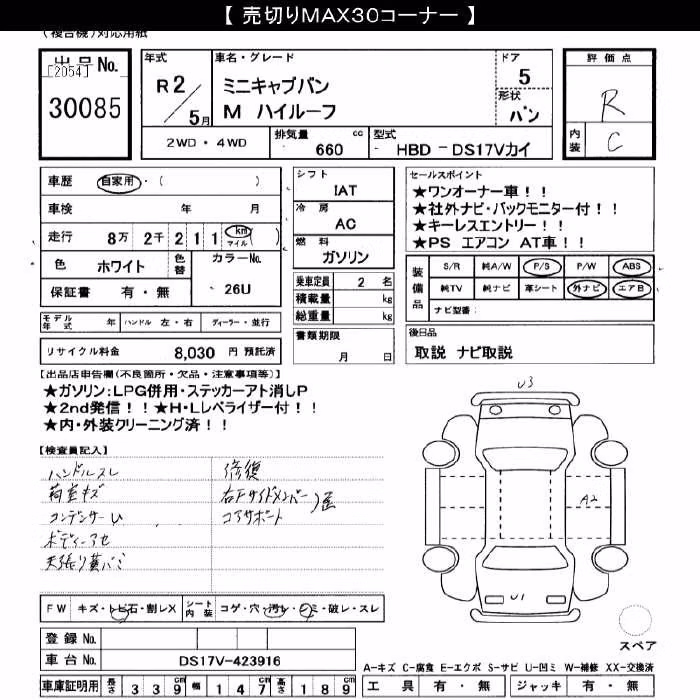 【 売切りMAX30コーナー 】
(複合機)対応用紙
出品No.
[2054]
30085
年式
R2/5月
車名・グレード
ミニキャブバン
M ハイルーフ
ドア
5
形状
バン
評価点
R
内装
C
2WD・4WD
排気量 660 cc
型式 HBD-DS17Vカイ
車歴 自家用・( )
車検 年 月
走行 8万 2千 211 km マイル ( )
色 ホワイト 色替 カラーNo. 26U
保証書 有・無
シフト
IAT
冷房
AC
燃料
ガソリン
乗車定員 2 名
積載量 kg
総重量 kg
書類期限
月 日
セールスポイント
★ワンオーナー車！！
★社外ナビ・バックモニター付！！
★キーレスエントリー！！
★PS エアコン AT車！！
装備品 S/R 純A/W P/S P/W ABS
純TV 純ナビ 革シート 外ナビ エアB
ナビ型番:
後日品
取説 ナビ取説
モデル年式 年 ハンドル 左・右 ディーラー・並行
リサイクル料金 8,030 円 預託済
【出品店申告欄(不良箇所・欠品・注意事項等)】
★ガソリン:LPG併用・ステッカーアト消しP
★2nd発信！！★H・Lレベライザー付！！
★内・外装クリーニング済！！
【検査員記入】
ハンドルスレ
荷室キズ
コンデンサーU
ボディーアセ
修復
右Fサイドメンバー
コアサポート
U3
A2
U1
スペア
FW キズ・トビ石・割レX
シート内装 コゲ・穴・汚レ・シミ・破レ・スレ
登録No.
車台No. DS17V-423916
車庫証明用 長さ 339cm 幅 147cm 高さ 189cm
A-キズ C-腐食 E-エクボ S-サビ U-凹ミ W-補修 XX-交換済
工具 有・無 ジャッキ 有・無